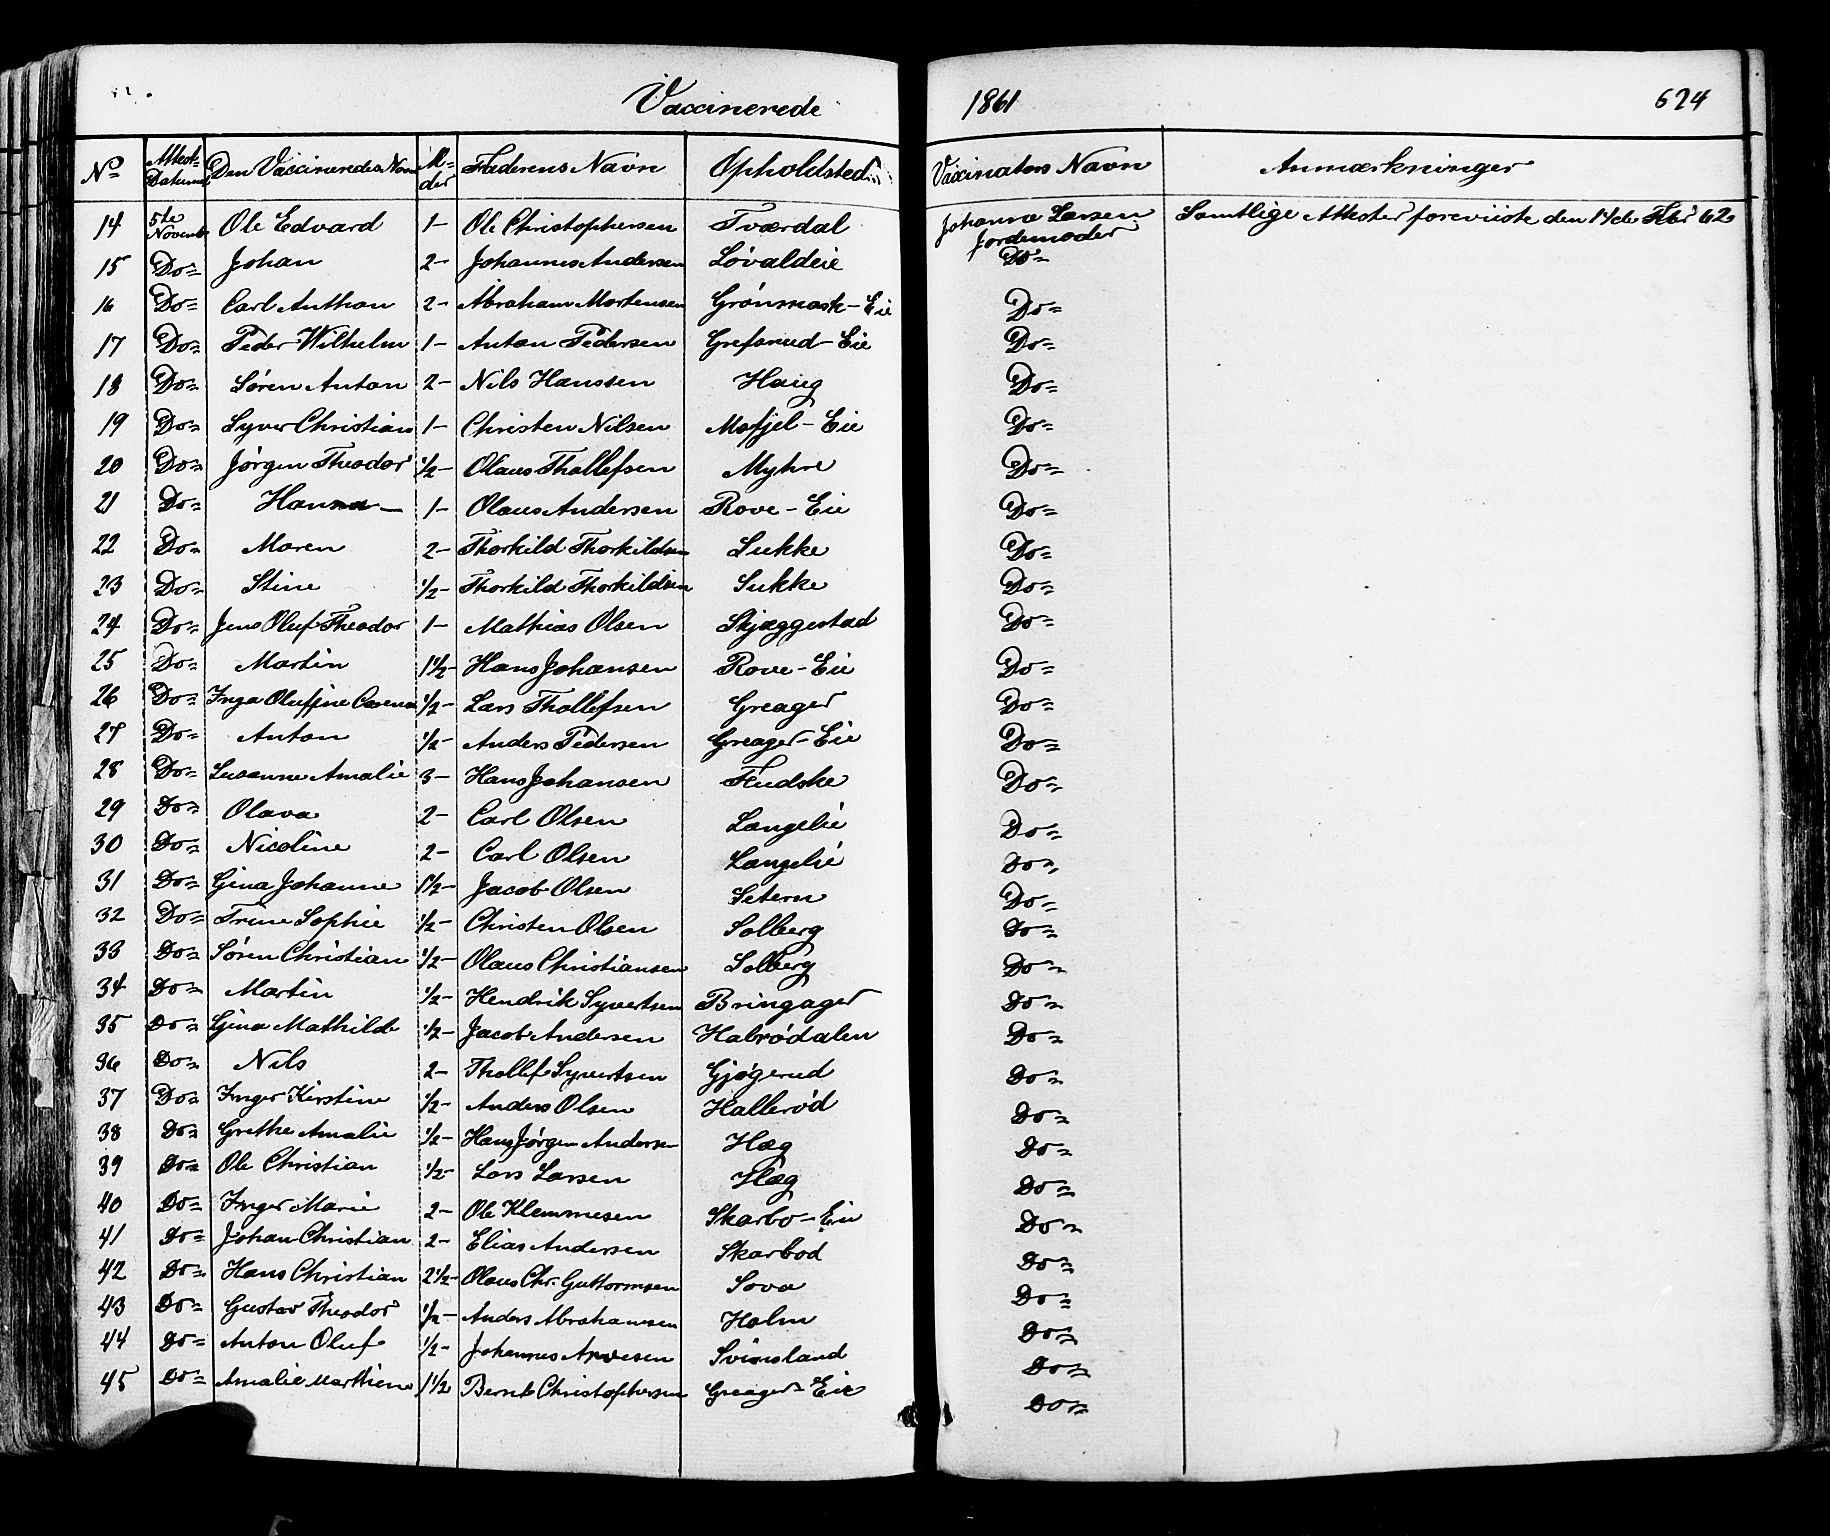 Vaccinerede 1861 624
No Attest. Datum Den Vaccineredes Navn Al- der Faderens Navn Opholdsted Vaccinators Navn Anmærkninger
14 5te Novemb Ole Edvard 1- Ole Christophersen Tværdal Johanne Larsen Jordemoder Samtlige Attester foreviiste den 14de Febr 62
15 Do= Johan 2- Johannes Andersen Løvaldeie Do=
16 Do= Carl Anthon 2- Abraham Mortensen Grønmask-Eie Do=
17 Do= Peder Wilhelm 1- Anton Pedersen Grefsrud-Eie Do=
18 Do= Søren Anton 2- Nils Hanssen Haug Do=
19 Do= Syver Christian 1- Christen Nilsen Mofjel-Eie Do=
20 Do= Jørgen Theodor 1/2- Olaus Thollefsen Myhre Do=
21 Do= Hanna- 1- Olaus Andersen Rove-Eie Do=
22 Do= Maren 2- Thorkild Thorkildsen Sukke Do=
23 Do= Stine 1/2- Thorkild Thorkildsen Sukke Do=
24 Do= Jens Oluf Theodor 1- Mathias Olsen Skjæggestad Do=
25 Do= Martin 1 1/2- Hans Johansen Rove-Eie Do=
26 Do= Inga Oluffine Carena 1/2- Lars Thollefsen Greager Do=
27 Do= Anton 1/2- Anders Pedersen Greager-Eie Do=
28 Do= Susanne Amalie 3- Hans Johansen Fudske Do=
29 Do= Olava 2- Carl Olsen Langelie Do=
30 Do= Nicoline 2- Carl Olsen Langelie Do=
31 Do= Gina Johanne 1 1/2- Jacob Olsen Setern Do=
32 Do= Trine Sophie 1/2- Christen Olsen Solberg Do=
33 Do= Søren Christian 1/2- Olaus Christiansen Solberg Do=
34 Do= Martin 1/2- Hendrik Syvertsen Bringager Do=
35 Do= Gina Mathilde 1/2- Jacob Andersen Halrødalen Do=
36 Do= Nils 2- Thollef Syvertsen Gjøgerud Do=
37 Do= Inger Kirstine 1/2- Anders Olsen Hallerød Do=
38 Do= Grethe Amalie 1/2- Hans Jørgen Andersen Hæg Do=
39 Do= Ole Christian 1/2- Lars Larsen Hæg Do=
40 Do= Inger Marie 2- Ole Klemmesen Skarbo-Eie Do=
41 Do= Johan Christian 2- Elias Andersen Skarbod Do=
42 Do= Hans Christian 2 1/2- Olaus Chr. Guttormsen Sova Do=
43 Do= Gustav Theodor 1/2- Anders Abrahamsen Holm Do=
44 Do= Anton Oluf 1/2- Johannes Arvesen Svinsland Do=
45 Do= Amalie Marthine 1 1/2 Bernt Christophersen Greager-Eie Do=